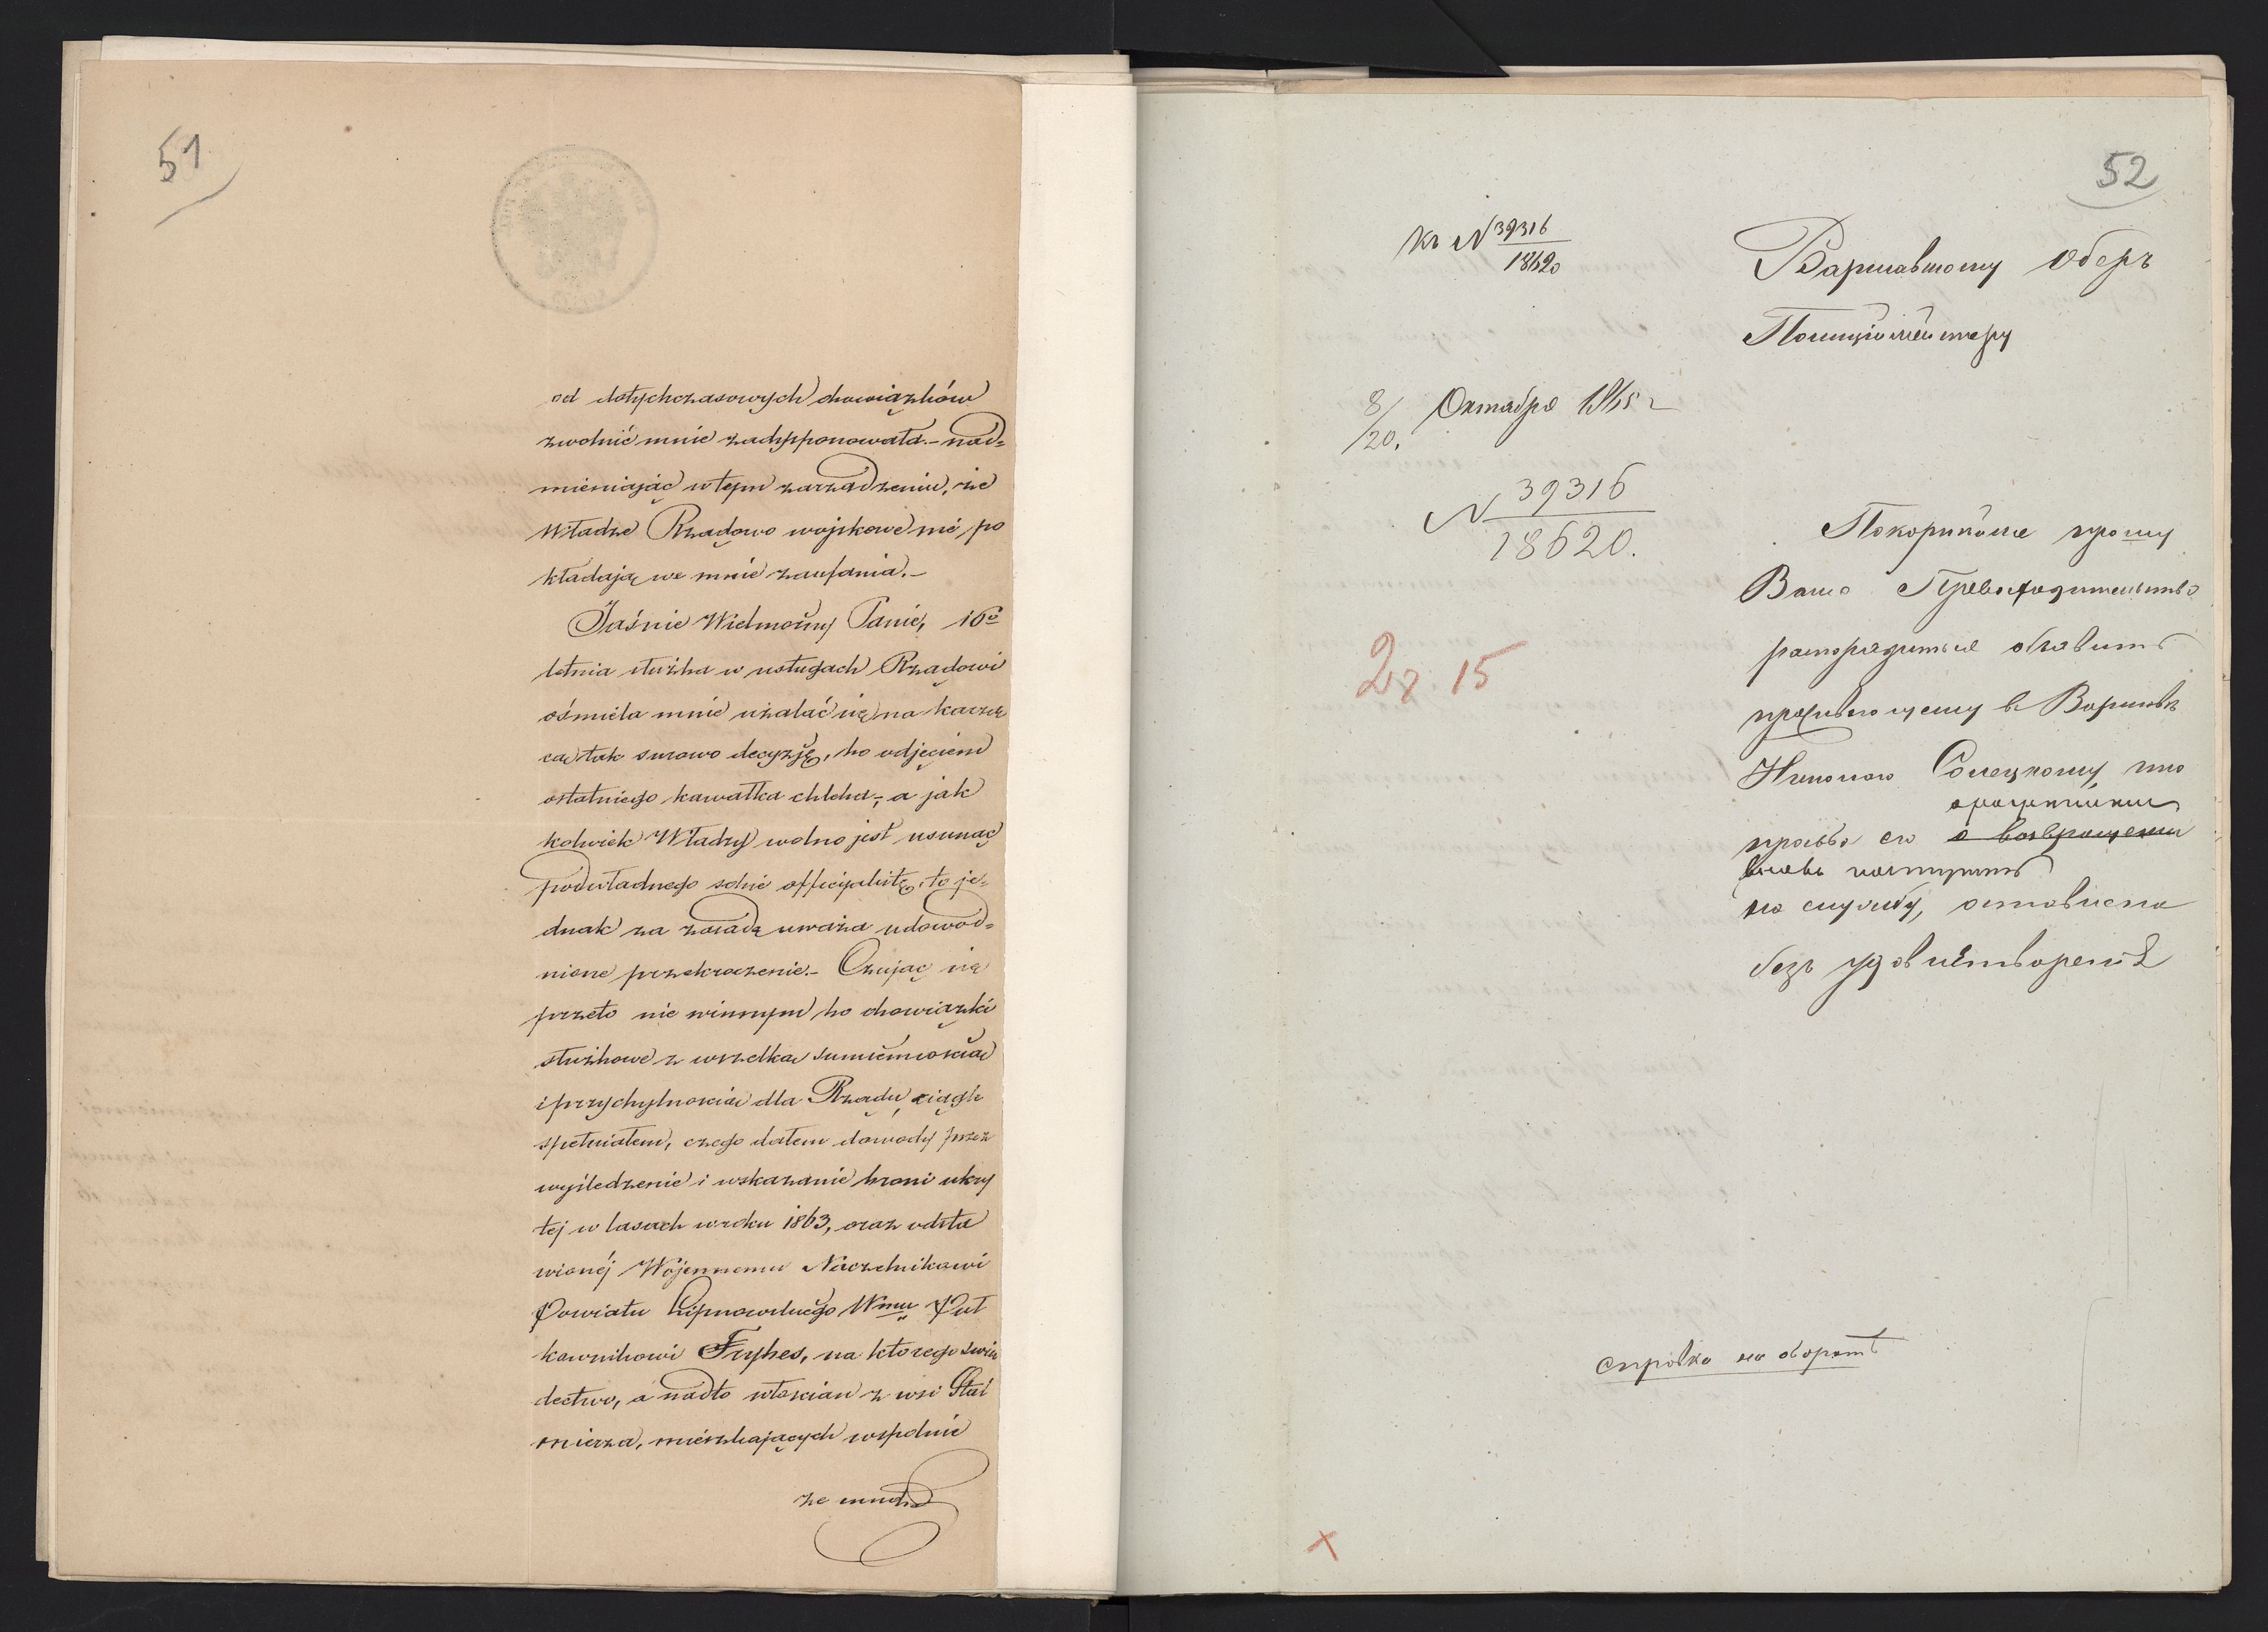 51
od dotychczasowych obowiązków
zwolnić mnie zadysponowała.- nad=
mieniając w tem zarządzeniu, że
Władze Rządowo wojskowe nie po
kładają we mnie zaufania.-
Jaśnie Wielmożny Panie, 16o
letnia służba w usługach Rządowi
ośmiela mnie użalać się na karzą
cą tak surowo decyzję, bo odjęciem
ostatniego kawałka chleba,- a jak
kolwiek Władzy wolno jest usunąć
podwładnego sobie officyalistę, to je=
dnak za zasadę uważa udowod=
nione przekroczenie.- Czując się
przeto nie winnym bo obowiązki
służbowe z wszelką sumiennością
i przychylnością dla Rządu, ciągle
spełniałem, czego dałem dowody przez
wyśledzenie i wskazanie broni ukry
tej w lasach w roku 1863, oraz odsta
wionéj Wojennemu Naczelnikowi
Powiatu Lipnowskiego Wmu Puł
kownikowi na którego świa
dectwo, a nadto włościan z wsi
mieszkających wspólnie
ze mną
52
къ N 39316
18620
Варшавскому Оберъ
Полиціймейстеру
8/20. Октября 1865 г
N 39316
18620.
Покорнѣйше прошу
Ваше Превосходительство
распорядиться объявить
проживающему въ Варшавѣ
Сопецкому, что
просьба его о возвращеніи
вновь поступить
на службу, оставлена
безъ удовлетворенія
15
справка на оборотѣ